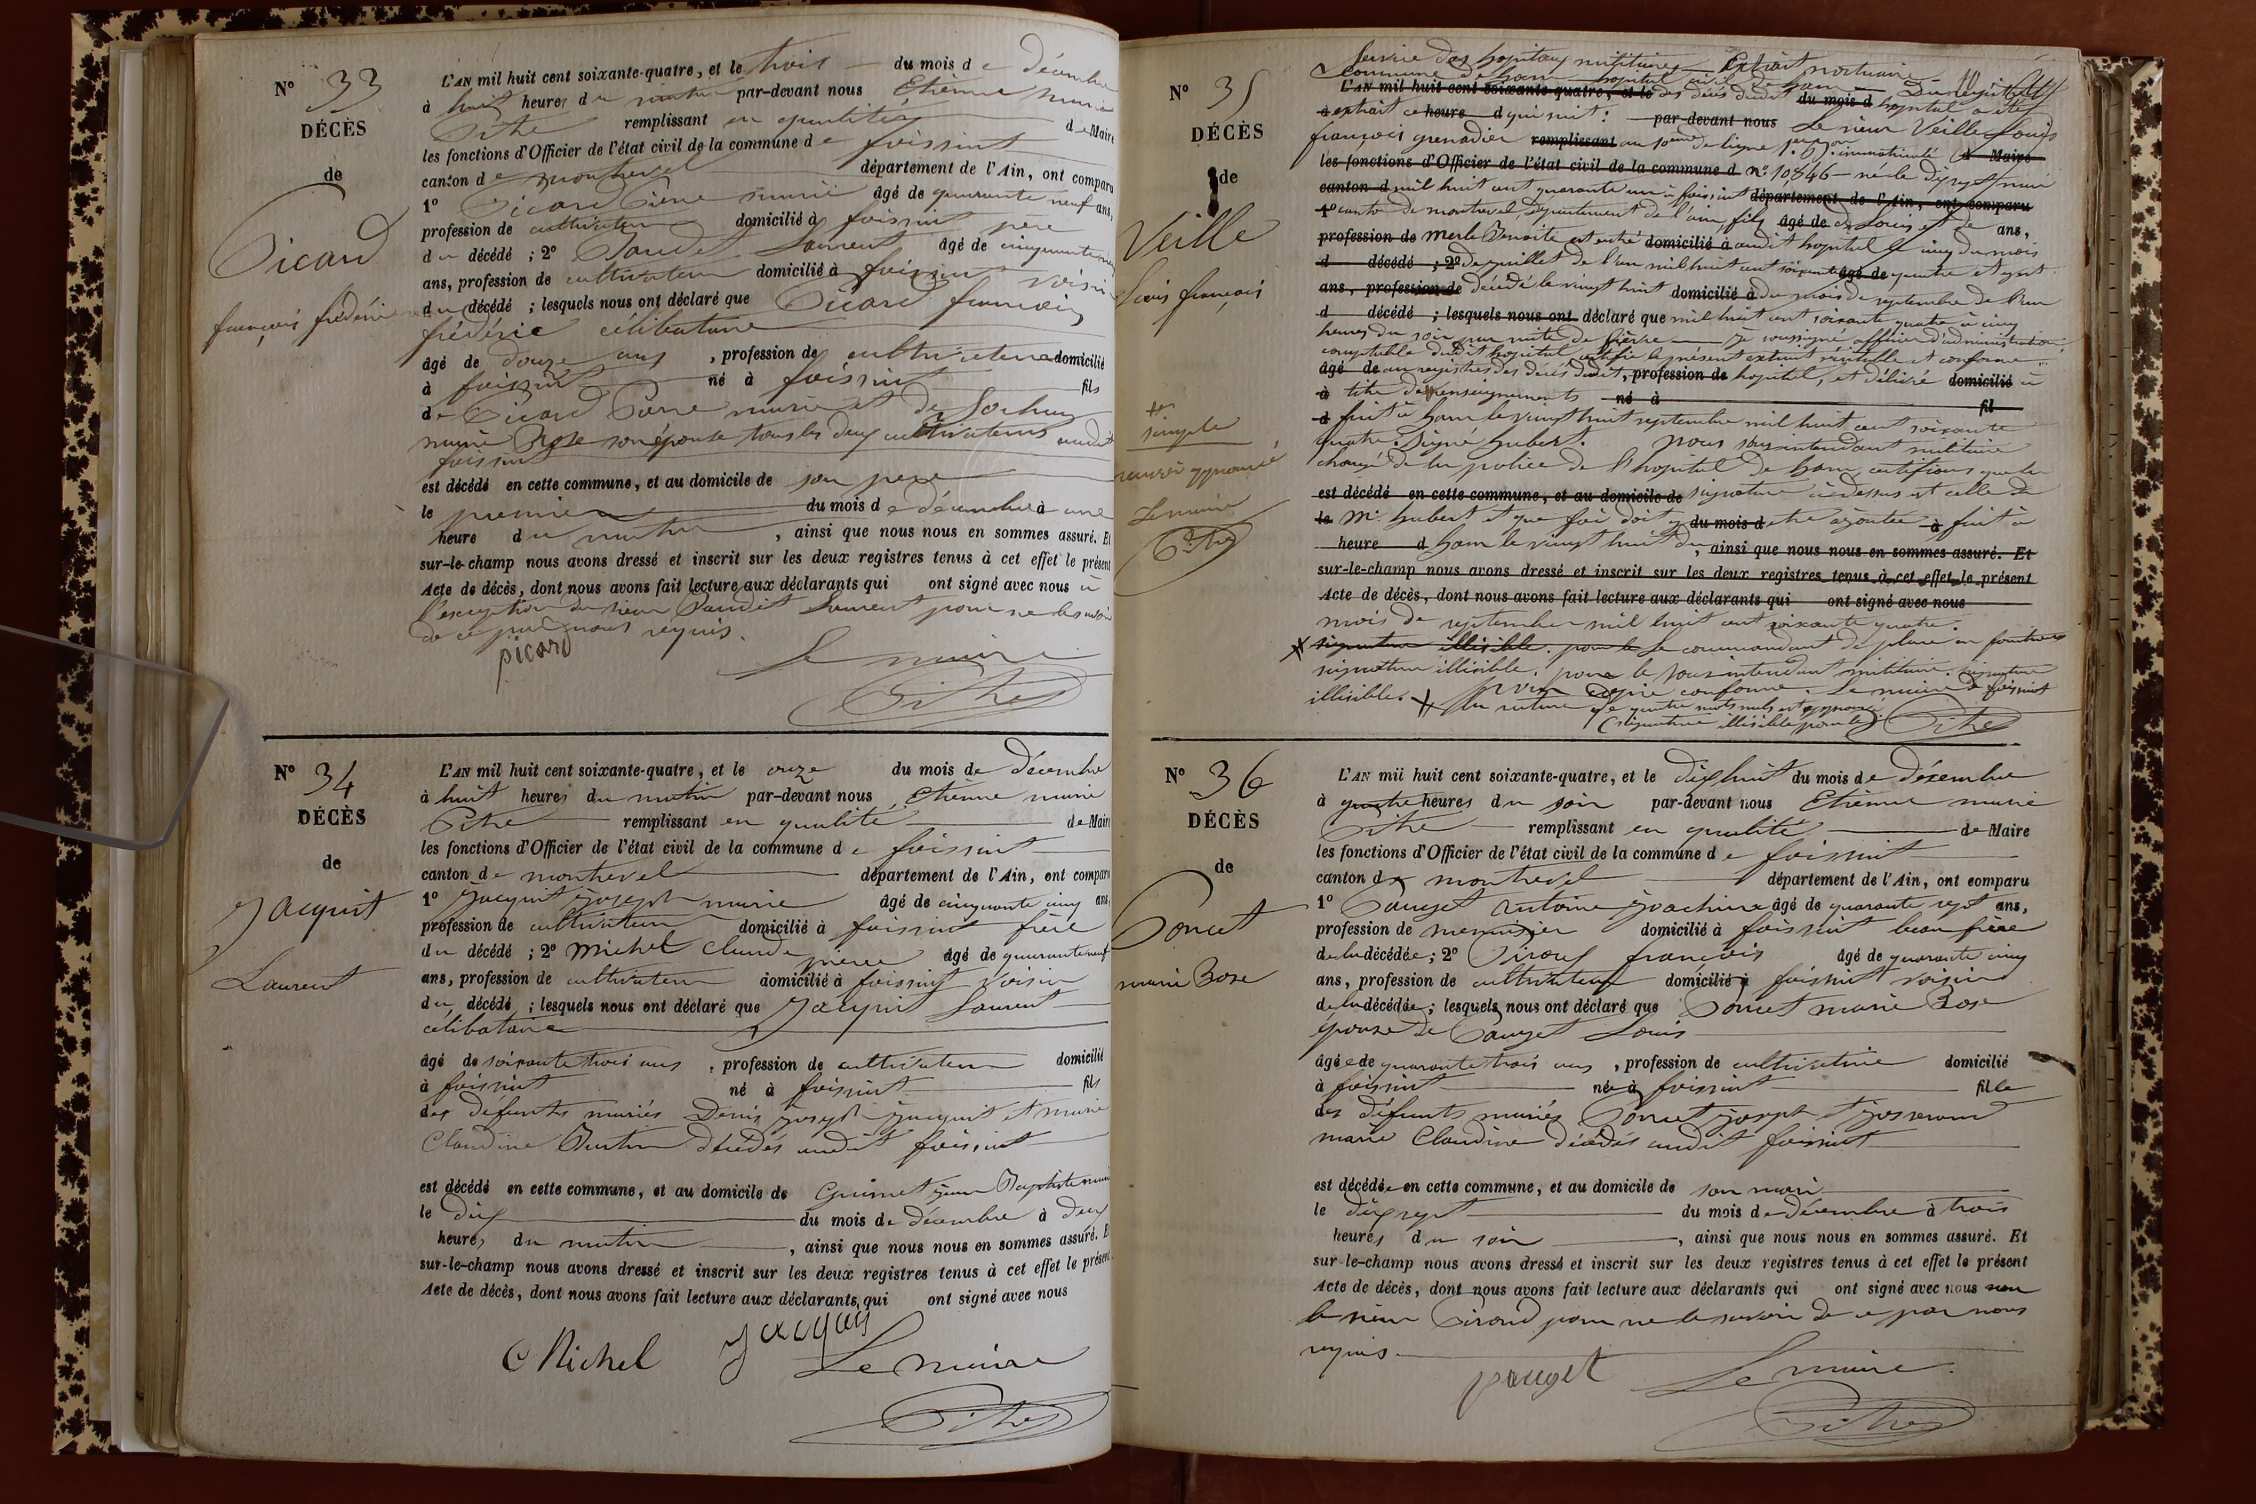 N° 33
DÉCÈS
de
Picard
françois frédéric
L'AN mil huit cent soixante-quatre, et le trois du mois de décembre
à huit heures du matin par-devant nous Etienne marie
Pitre remplissant en qualité de Maire
les fonctions d'Officier de l'état civil de la commune de foissiat
canton de montrevel département de l'Ain, ont comparu
1° Picard Pierre marie âgé de quarante neuf ans,
profession de cultivateur domicilié à foissiat père
du décédé ; 2° Paudet Laurent âgé de cinquante
ans, profession de cultivateur domicilié à foissiat voisin
du décédé ; lesquels nous ont déclaré que Picard françois
frédéric célibataire
âgé de douze ans, profession de cultivateur domicilié
à foissiat né à foissiat fils
de Picard Pierre marie et de
marie Rose son épouse tous les deux cultivateurs audit
foissiat
est décédé en cette commune, et au domicile de son père
le premier du mois de décembre à une
heure du matin, ainsi que nous nous en sommes assuré. Et
sur-le-champ nous avons dressé et inscrit sur les deux registres tenus à cet effet le présent
Acte de décès, dont nous avons fait lecture aux déclarants qui ont signé avec nous à
l'exception du sieur Paudet Laurent pour ne le savoir
de ce par nous requis.
picard
Le maire
Pitre
N° 34
DÉCÈS
de
Jacquit
Laurent
L'AN mil huit cent soixante-quatre, et le onze du mois de décembre
à huit heures du matin par-devant nous Etienne marie
Pitre remplissant en qualité de Maire
les fonctions d'Officier de l'état civil de la commune de foissiat
canton de montrevel département de l'Ain, ont comparu
1° Jacquit Joseph marie âgé de cinquante cinq ans,
profession de cultivateur domicilié à foissiat frère
du décédé ; 2° Michel Claude pierre âgé de quarante neuf
ans, profession de cultivateur domicilié à foissiat voisin
du décédé ; lesquels nous ont déclaré que Jacquit Laurent
célibataire
âgé de soixante trois ans, profession de cultivateur domicilié
à foissiat né à foissiat fils
des défunts mariés Denis Joseph Jacquit et marie
Claudine Burtin décédés audit foissiat
est décédé en cette commune, et au domicile de Guimet Jean Baptiste marie
le dix du mois de décembre à deux
heures du matin, ainsi que nous nous en sommes assuré. E
sur-le-champ nous avons dressé et inscrit sur les deux registres tenus à cet effet le présent
Acte de décès, dont nous avons fait lecture aux déclarants, qui ont signé avec nous
C Michel
Le maire
Pitre
N° 35
DÉCÈS
de
Veille
Louis françois
simple
rature approuvée
Le maire
Pitre
Service des hopitaux militaires Extrait mortuaire
Commune de ham hopital civil de ham Du registre
L'AN mil huit cent soixante-quatre, et le des décès dudit du mois d hopital a été
à extrait ce heure d qui suit : par-devant nous Le sieur Veille Louis
françois grenadier remplissant au de ligne immatriculé d Maire
les fonctions d'Officier de l'état civil de la commune d n° 10,846 né le dix sept mai
canton d mil huit cent quarante un à foissiat département de l'Ain, ont comparu
1° canton de montrevel, département de l'ain, fils âgé de de Louis et de ans,
profession de Merle Benoite est entré domicilié à audit hopital le cinq du mois
d décédé ; 2° de juillet de l'an mil huit cent soixante âgé de quatre et y est
ans, profession de décédé le vingt huit domicilié à du mois de septembre de l'an
d décédé ; lesquels nous ont déclaré que mil huit cent soixante quatre à cinq
heures du soir par suite de fièvre je soussigné officier d'administration
comptable dudit hopital certifie le présent extrait véritable et conforme
âgé de aux registres des décès dudit, profession de hopital, et délivré domicilié à
à titre de renseignements né à fil
d fait à ham le vingt huit septembre mil huit cent soixante
quatre. Signé hubert. Nous sous intendant militaire
chargé de la police de l'hopital de ham certifions que la
est décédé en cette commune, et au domicile de signature ci dessus est celle de
le Mr. hubert et que foi doit y du mois d etre ajoutée à fait à
heure d ham le vingt huit du, ainsi que nous nous en sommes assuré. Et
sur-le-champ nous avons dressé et inscrit sur les deux registres tenus à cet effet le présent
Acte de décès, dont nous avons fait lecture aux déclarants qui ont signé avec nous
mois de septembre mil huit cent soixante quatre.
signature illisible. pour le Le commandant de place en fonctions
signature illisible. pour le sous intendant militaire. signature
illisible. pour copie conforme. Le maire de foissiat
La rature de quatre mots nuls est approuvée
(signature illisible pour le) Pitre
N° 36
DÉCÈS
de
Poncet
marie Rose
L'AN mil huit cent soixante-quatre, et le dix huit du mois de décembre
à quatre heures du soir par-devant nous Etienne marie
Pitre remplissant en qualité de Maire
les fonctions d'Officier de l'état civil de la commune de foissiat
canton de montrevel département de l'Ain, ont comparu
1° Pauget Antoine Joachim âgé de quarante sept ans,
profession de menuisier domicilié à foissiat beau frère
de la décédée ; 2° Piroud françois âgé de quarante cinq
ans, profession de cultivateur domicilié à foissiat voisin
de la décédée ; lesquels nous ont déclaré que Poncet marie Rose
épouse de Pauget Louis
âgée de quarante trois ans, profession de cultivatrice domicilié
à foissiat née à foissiat fille
des défunts mariés Poncet Joseph et Josserand
marie Claudine décédés audit foissiat
est décédée en cette commune, et au domicile de son mari
le dix sept du mois de décembre à trois
heures du soir, ainsi que nous nous en sommes assuré. Et
sur-le-champ nous avons dressé et inscrit sur les deux registres tenus à cet effet le présent
Acte de décès, dont nous avons fait lecture aux déclarants qui ont signé avec nous non
le sieur Piroud pour ne le savoir de ce par nous
requis.
pauget
Le maire
Pitre